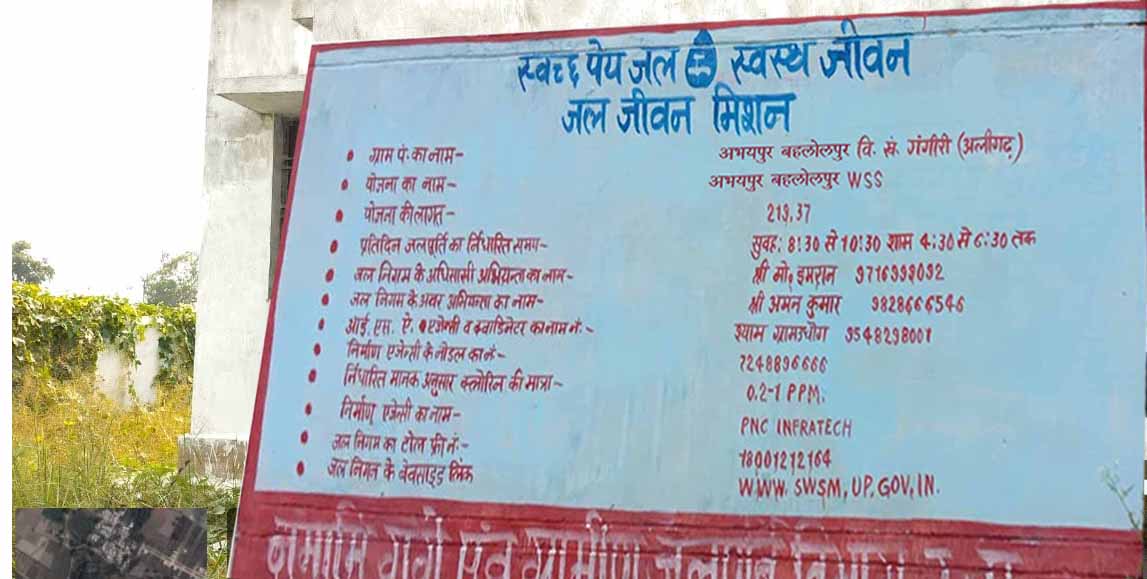 स्वच्छ पेय जल स्वस्थ जीवन
जल जीवन मिशन
ग्राम पं. का नाम- अभयपुर बहलोलपुर वि. खं. गंगीरी (अलीगढ़)
योजना का नाम- अभयपुर बहलोलपुर WSS
योजना की लागत- 213.37
प्रतिदिन जलपूर्ति का निर्धारित समय- सुवह: 8:30 से 10:30 शाम 4:30 से 6:30 तक
जल निगम के अधिसासी अभियन्ता का नाम- श्री मो. इमरान
जल निगम के अवर अभियन्ता का नाम- श्री अमन कुमार 9828666546
आई. एस. ए. एजेन्सी व क्वाडिनेटर का नाम नं:- श्याम ग्रामउधोग
निर्माण एजेन्सी के नोडल का नं- 7248896666
निर्धारित मानक अनुसार क्लोरिन की मात्रा- 0.2-1 PPM.
निर्माण एजेन्सी का नाम- PNC INFRATECH
जल निगम का टोल फ्री नं:- 18001212164
जल निगम के वेबसाइड लिंक WWW. SWSM, UP. GOV, IN.
नमामि गंगे एवं ग्रामीण